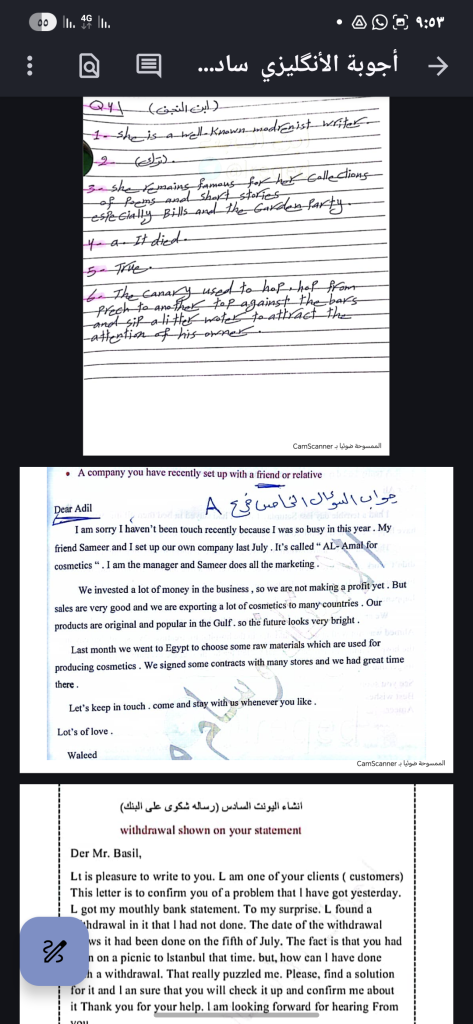 ٩:٥٣
4G
أجوبة الأنگليزي ساد...
Q4\ (ابن النجف)
1- she is a well-known modrenist writer.
2- (ترك).
3- she remains famous for her collections
of poems and short stories
especially Bills and the Garden party.
4- a. It died.
5- True.
6- The canary used to hop, hop from
prech to another top against the bars
and sip a litter water to attract the
attention of his owner.
الممسوحة ضوئيا بـ CamScanner
• A company you have recently set up with a friend or relative
جواب السؤال الخامس فرع A
Dear Adil
I am sorry I haven't been touch recently because I was so busy in this year . My
friend Sameer and I set up our own company last July . It's called “ AL- Amal for
cosmetics “ . I am the manager and Sameer does all the marketing .
We invested a lot of money in the business , so we are not making a profit yet . But
sales are very good and we are exporting a lot of cosmetics to many countries . Our
products are original and popular in the Gulf . so the future looks very bright .
Last month we went to Egypt to choose some raw materials which are used for
producing cosmetics . We signed some contracts with many stores and we had great time
there .
Let's keep in touch . come and stay with us whenever you like .
Lot's of love .
Waleed
الممسوحة ضوئيا بـ CamScanner
انشاء اليونت السادس (رساله شكوى على البنك)
withdrawal shown on your statement
Der Mr. Basil,
Lt is pleasure to write to you. L am one of your clients ( customers)
This letter is to confirm you of a problem that I have got yesterday.
L got my mouthly bank statement. To my surprise. L found a
hdrawal in it that I had not done. The date of the withdrawal
ws it had been done on the fifth of July. The fact is that you had
n on a picnic to Istanbul that time. but, how can I have done
h a withdrawal. That really puzzled me. Please, find a solution
for it and I an sure that you will check it up and confirm me about
it Thank you for your help. I am looking forward for hearing From
you